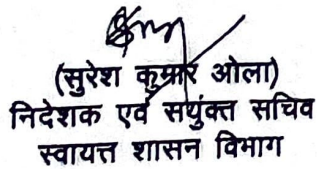 (सुरेश कुमार ओला)
निदेशक एवं सयुंक्त सचिव
स्वायत्त शासन विभाग